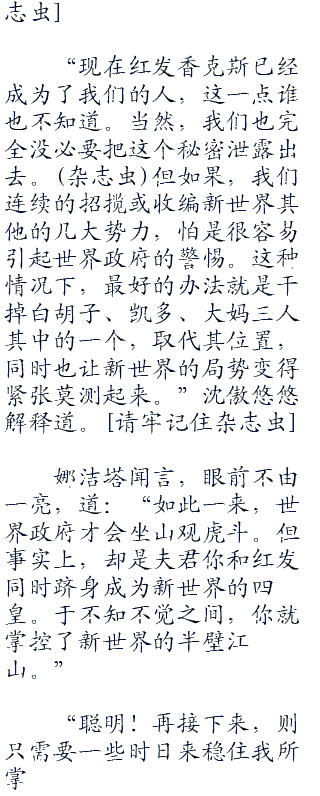 志虫]
“现在红发香克斯已经
成为了我们的人，这一点谁
也不知道。当然，我们也完
全没必要把这个秘密泄露出
去。(杂志虫)但如果，我们
连续的招揽或收编新世界其
他的几大势力，怕是很容易
引起世界政府的警惕。这种
情况下，最好的办法就是干
掉白胡子、凯多、大妈三人
其中的一个，取代其位置，
同时也让新世界的局势变得
紧张莫测起来。”沈傲悠悠
解释道。[请牢记住杂志虫]
娜洁塔闻言，眼前不由
一亮，道：“如此一来，世
界政府才会坐山观虎斗。但
事实上，却是夫君你和红发
同时跻身成为新世界的四
皇。于不知不觉之间，你就
掌控了新世界的半壁江
山。”
“聪明！再接下来，则
只需要一些时日来稳住我所
掌